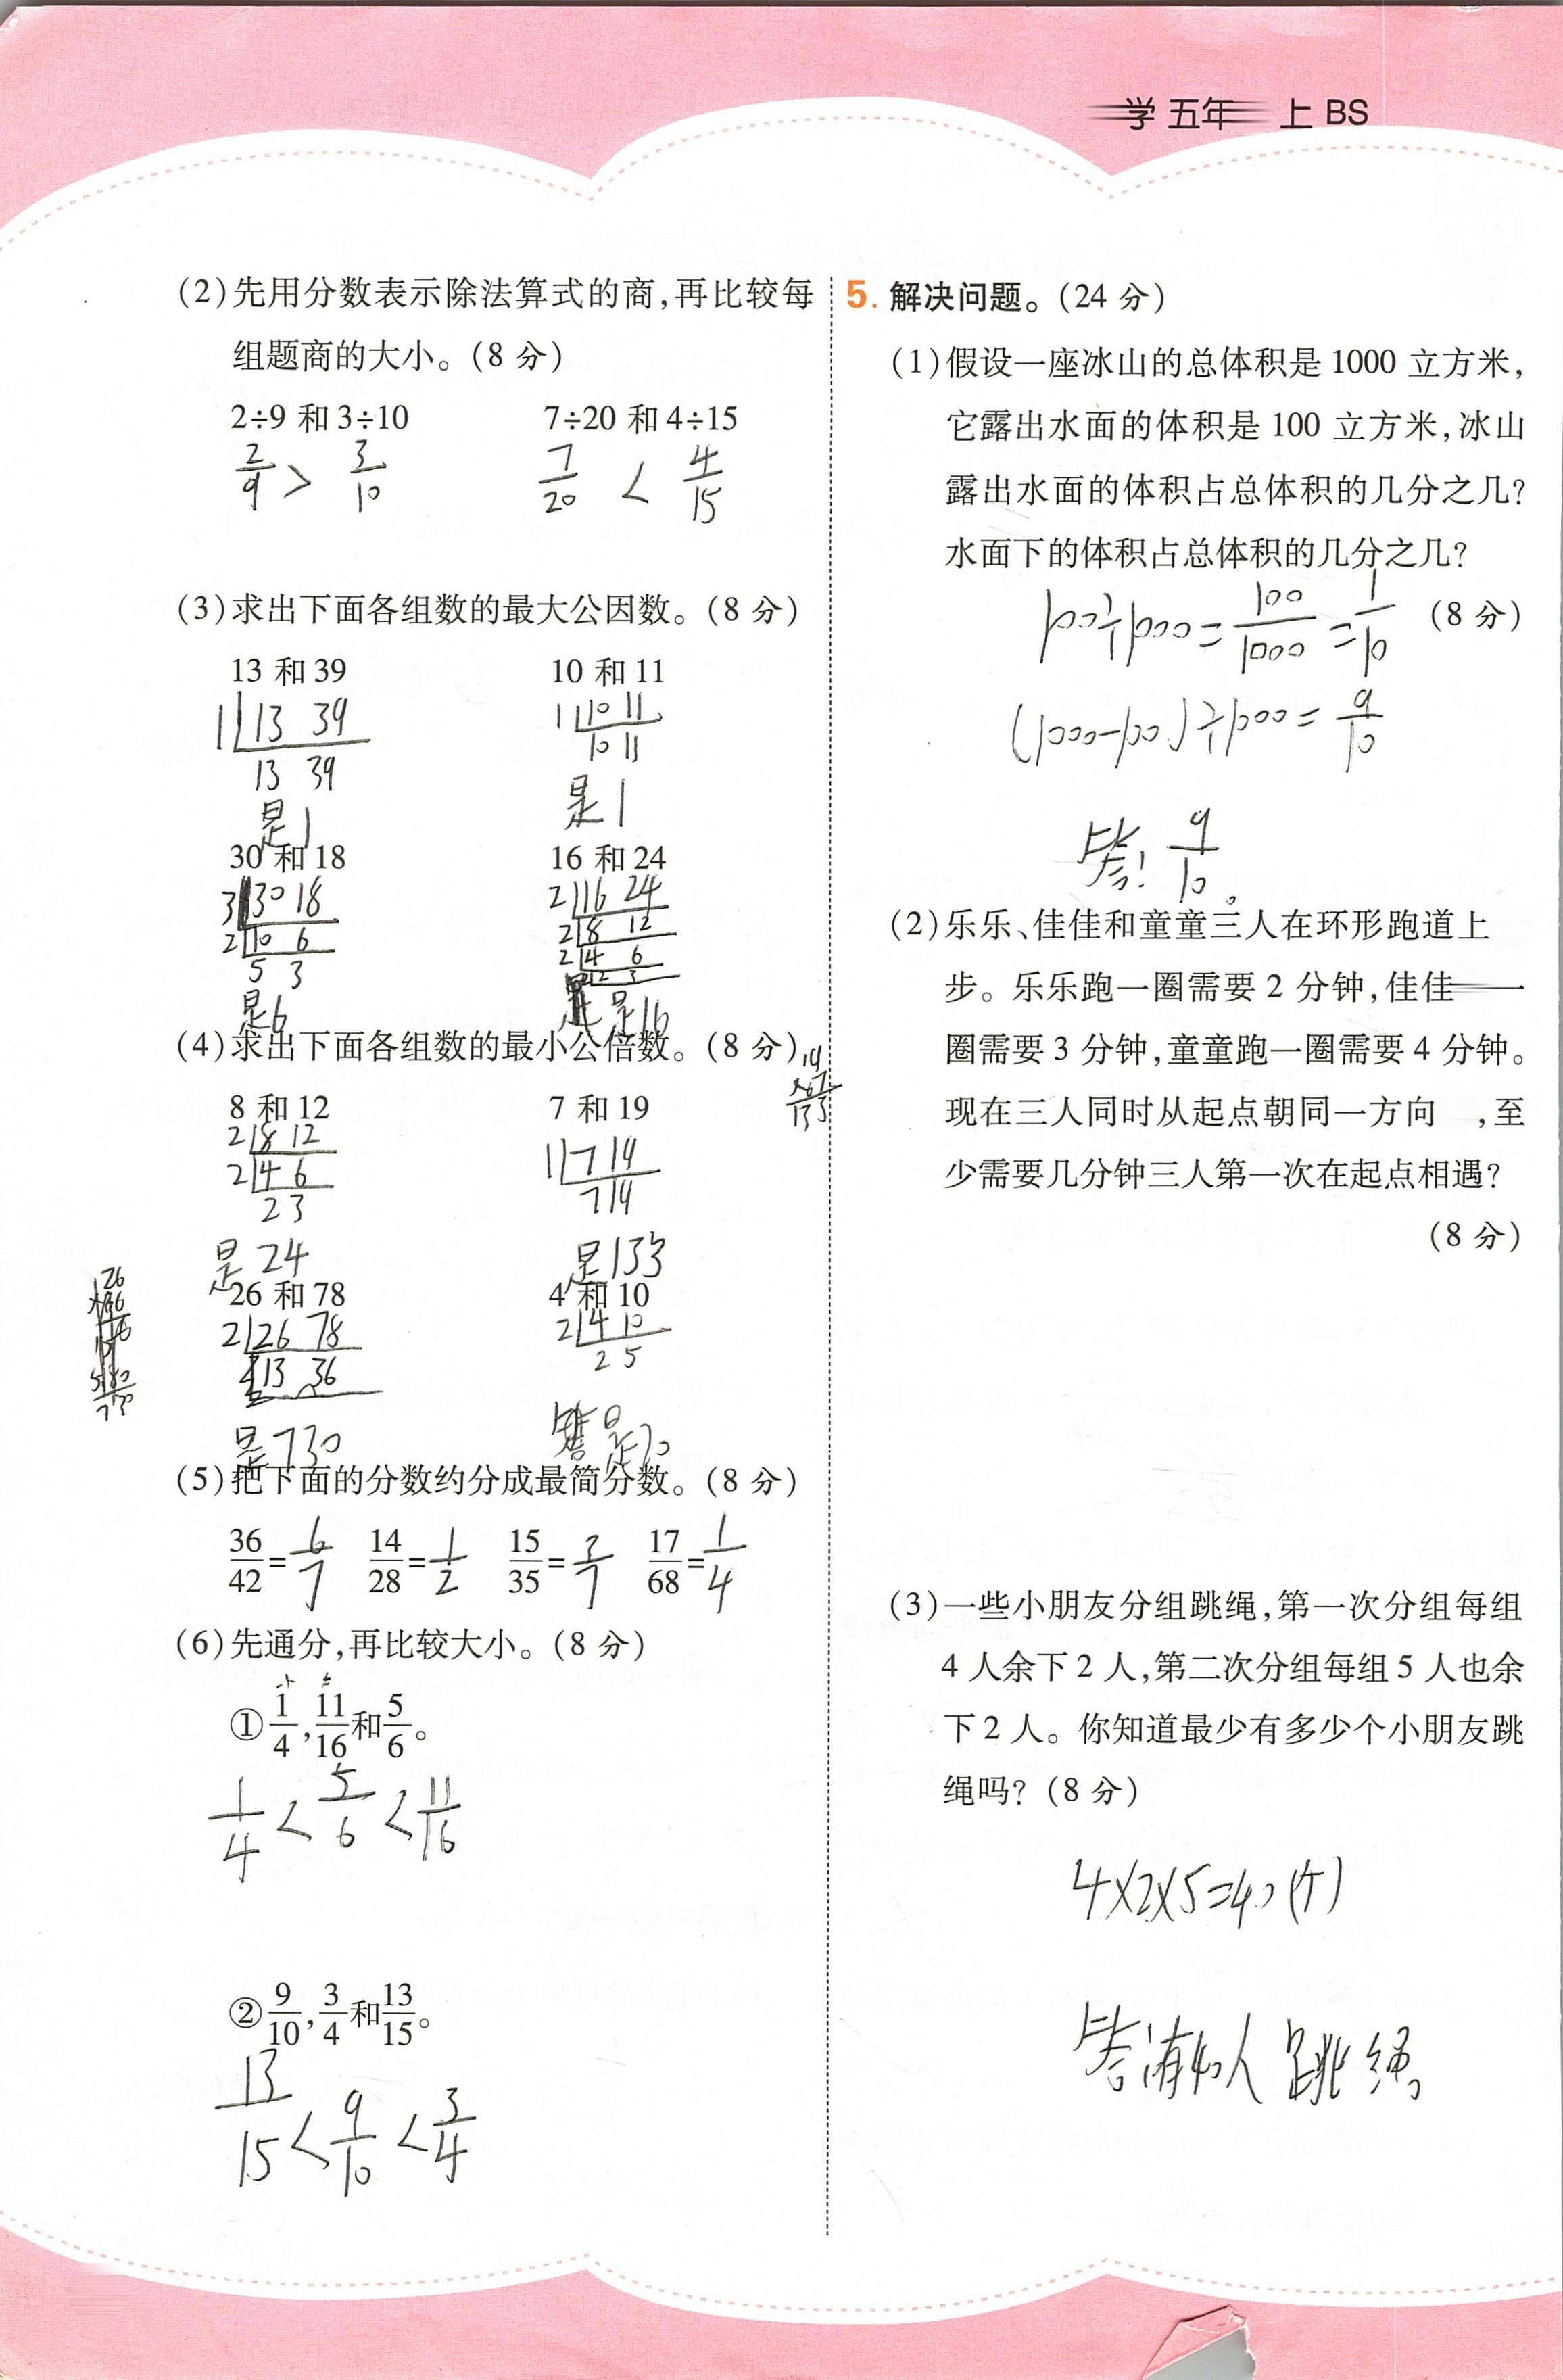 学 五年 上 BS
(2)先用分数表示除法算式的商,再比较每
组题商的大小。(8 分)
2÷9 和 3÷10 7÷20 和 4÷15
2/9 > 3/10 7/20 < 4/15
(3)求出下面各组数的最大公因数。(8 分)
13 和 39 10 和 11
1 13 39 1 10 11
13 39 10 11
是1 是1
30 和 18 16 和 24
3 30 18 2 16 24
2 10 6 2 8 12
5 3 2 4 6
2 3
是6 是16
(4)求出下面各组数的最小公倍数。(8 分)
8 和 12 7 和 19
2 8 12 1 7 19
2 4 6 7 19
2 3
是 24 是133
26 和 78 4 和 10
2 26 78 2 4 10
13 36 2 5
是730 是20
(5)把下面的分数约分成最简分数。(8 分)
36/42=6/7 14/28=1/2 15/35=3/7 17/68=1/4
(6)先通分,再比较大小。(8 分)
①1/4,11/16和5/6。
1/4<5/6<11/16
②9/10,3/4和13/15。
13/15<9/10<3/4
5. 解决问题。(24 分)
(1)假设一座冰山的总体积是 1000 立方米,
它露出水面的体积是 100 立方米,冰山
露出水面的体积占总体积的几分之几?
水面下的体积占总体积的几分之几?
(8 分)
100÷1000=100/1000=1/10
(1000-100)÷1000=9/10
答: 9/10。
(2)乐乐、佳佳和童童三人在环形跑道上
步。乐乐跑一圈需要 2 分钟,佳佳
圈需要 3 分钟,童童跑一圈需要 4 分钟。
现在三人同时从起点朝同一方向 ,至
少需要几分钟三人第一次在起点相遇?
(8 分)
(3)一些小朋友分组跳绳,第一次分组每组
4 人余下 2 人,第二次分组每组 5 人也余
下 2 人。你知道最少有多少个小朋友跳
绳吗? (8 分)
4×2×5=40(个)
答:有40人跳绳